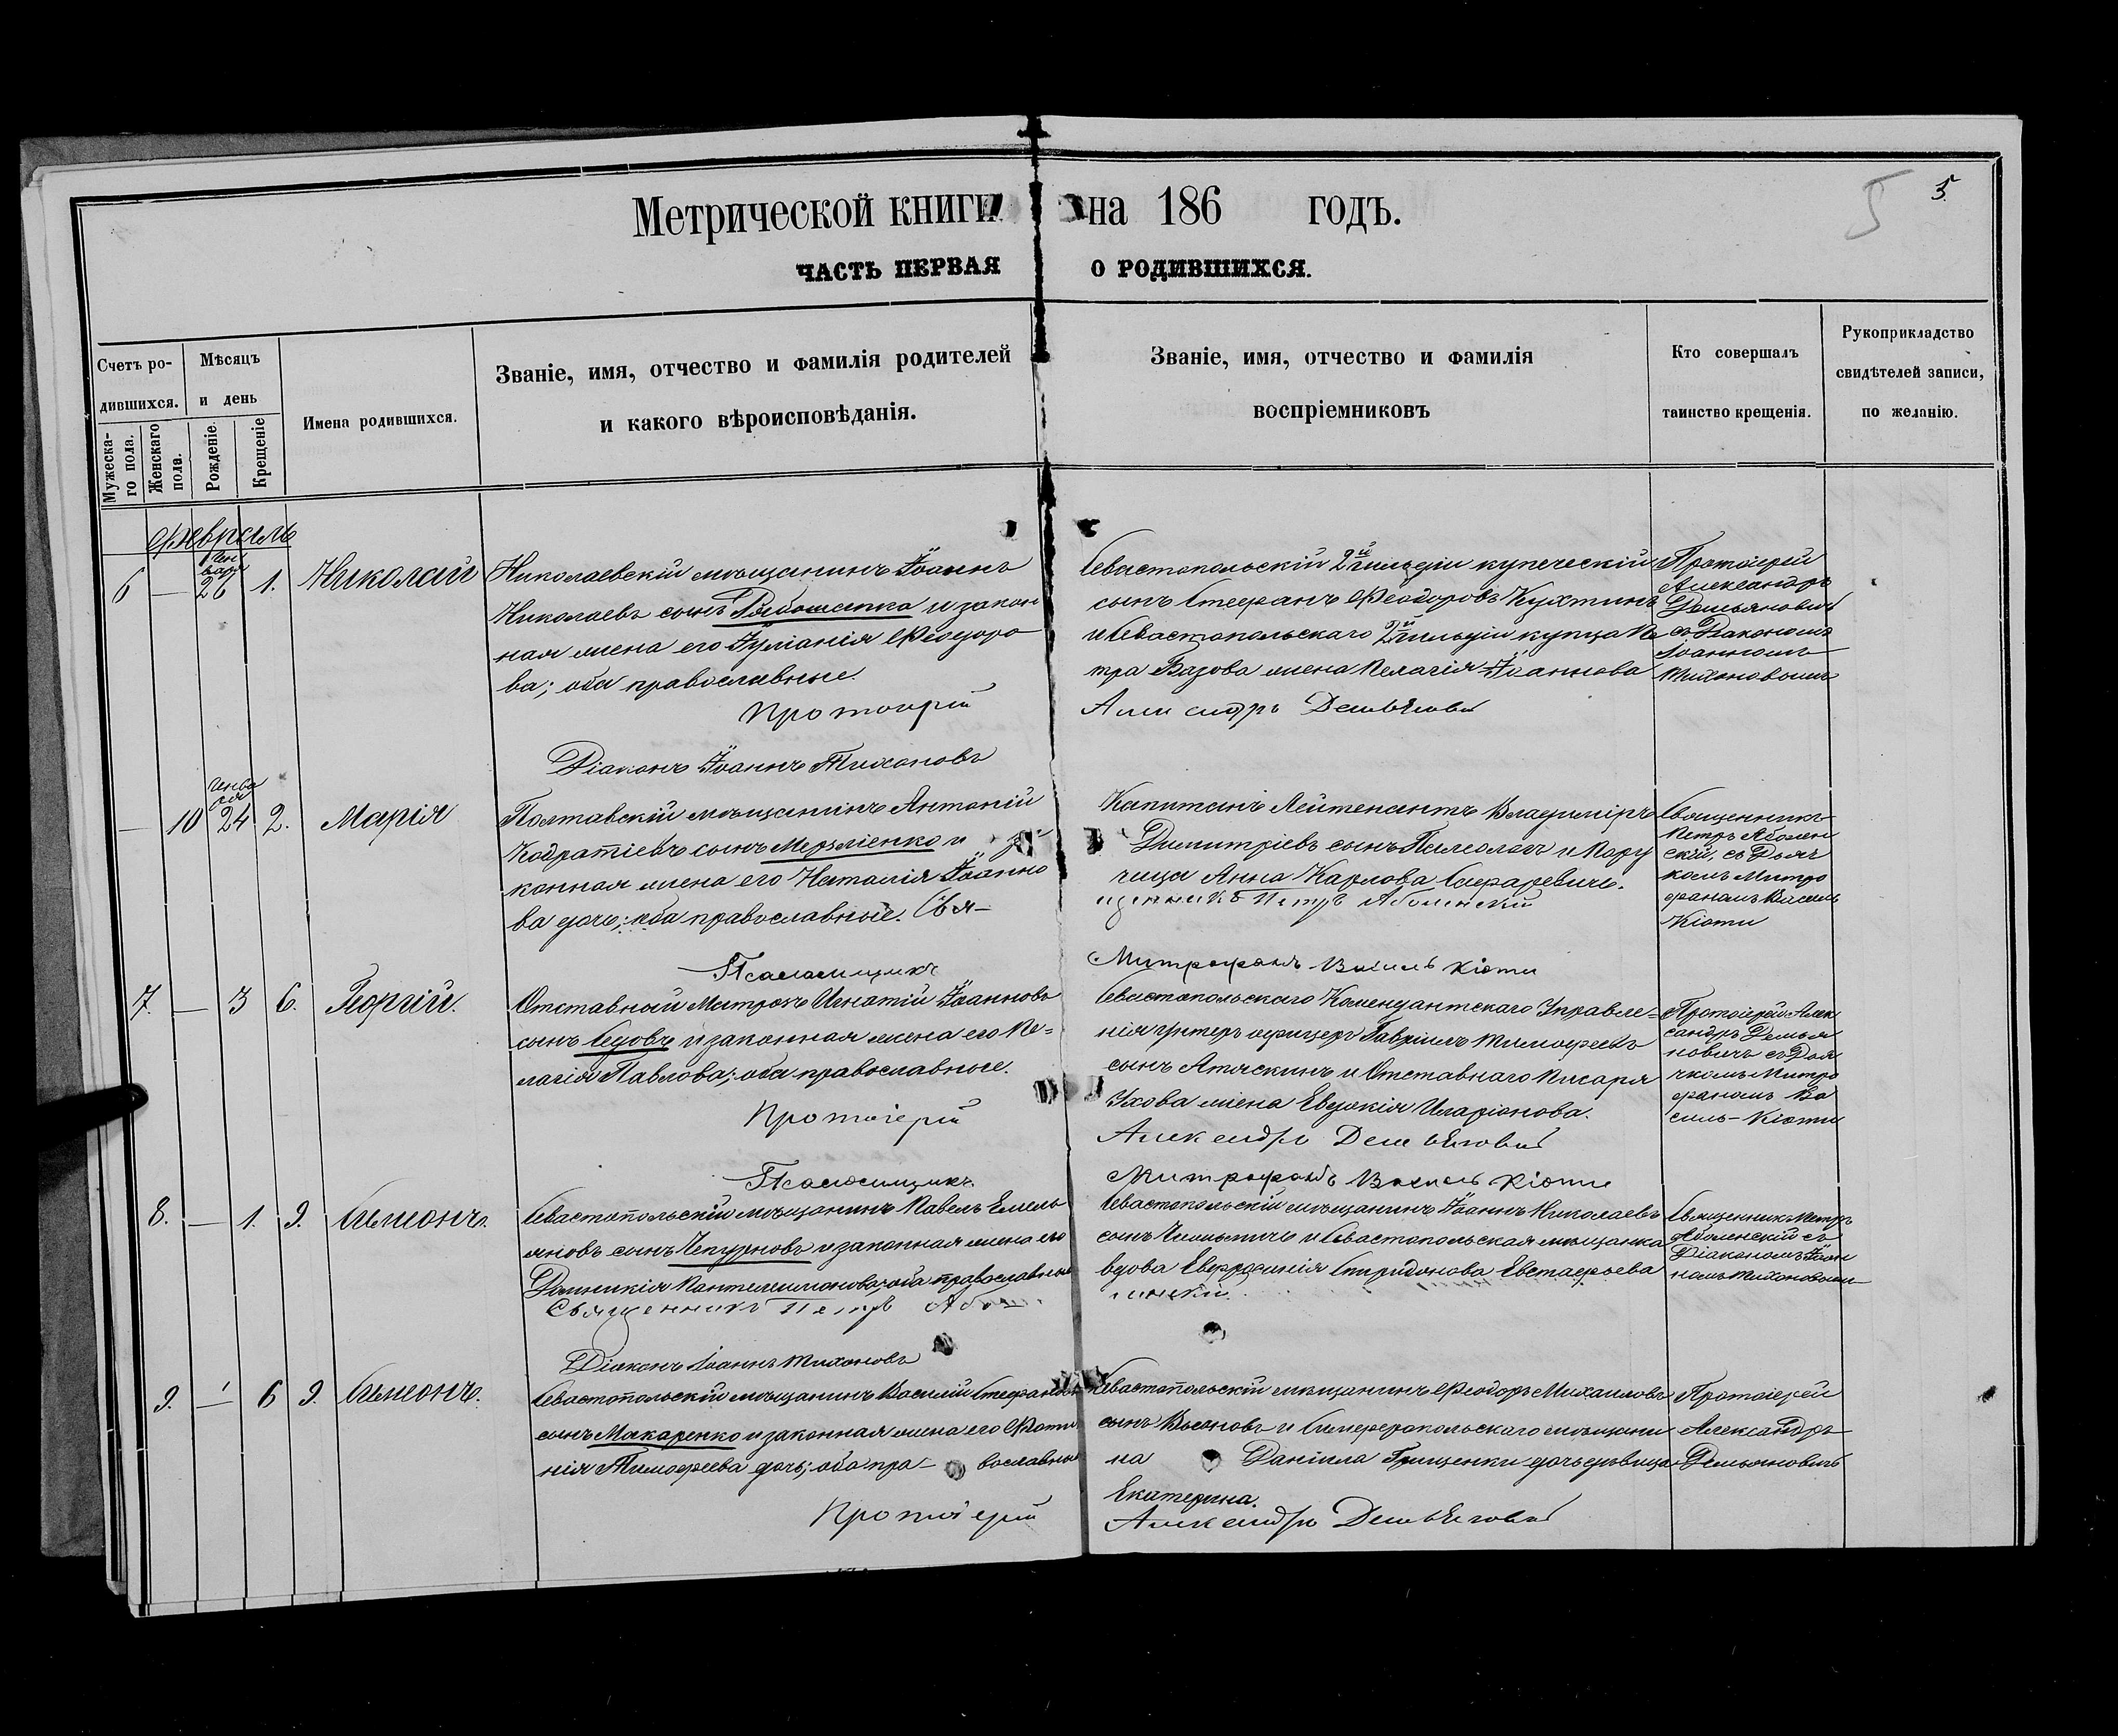 Метрической книги на 186 годъ.
5
5
ЧАСТЬ ПЕРВАЯ О РОДИВШИХСЯ.
Счетъ ро-
дившихся.
Мужеска-
го пола.
Женскаго
пола.
Мѣсяцъ
и день
Рожденіе.
Крещеніе
Имена родившихся.
Званіе, имя, отчество и фамилія родителей
и какого вѣроисповѣданія.
Званіе, имя, отчество и фамилія
воспріемниковъ
Кто совершалъ
таинство крещенія.
Рукоприкладство
свидѣтелей записи,
по желанію.
Февраль
6 — Ген
варя
26 1. Николай
Николаевскій мѣщанинъ Іоаннъ
Николаевъ сынъ Рябошапка и закон
ная жена его Іуліанія Феодоро
ва; оба православные.
Севастопольскій 2й гильдіи купеческій
сынъ Стефанъ Феодоровъ Кухтинъ
и Севастопольскаго 2й гильдіи купца Пе
тра Вазова жена Пелагія Іоаннова
Протоіерей
Александръ
Демьяновичъ
съ Діакономъ
Іоанномъ
Тихоновымъ
Протоіерей Александръ Демьяновичъ
Діаконъ Іоаннъ Тихоновъ
— 10 Генва
ря
24 2. Марія
Полтавскій мѣщанинъ Антоній
Кодратіевъ сынъ Мерзліенко и за
конная жена его Наталія Іоанно
ва дочь; оба православные. Свя-
Капитанъ Лейтенантъ Владиміръ
Димитріевъ сынъ Палеологъ и Пору
чица Анна Карлова Сафаревичъ.
щенникъ Петръ Аболенскій
Священникъ
Петръ Аболен
скій, съ Дьяч
комъ Митро
фаномъ Василь
Кіоти
Псаломщикъ Митрофанъ Василь Кіоти
7. — 3 6. Георгій.
Отставной Матрозъ Игнатій Іоанновъ
сынъ Седовъ и законная жена его Пе-
лагія Павлова; оба православные.
Севастопольскаго Комендантскаго Управле-
нія унтеръ офицеръ Гавріилъ Тимофеевъ
сынъ Атяскинъ и Отставнаго Писаря
Ухова жена Евдокія Иларіонова.
Протоіерей Алек
сандръ Демья
новичъ съ Дья
чкомъ Митро
фаномъ Ва
силь-Кіоти
Протоіерей Александръ Демьяновичъ
Псаломщикъ Митрофанъ Василь Кіоти
8. — 1. 9. Симеонъ.
Севастопольскій мѣщанинъ Павелъ Емель
яновъ сынъ Чепурновъ и законная жена его
Домникія Пантелеимонова; оба православные
Севастопольскій мѣщанинъ Іоаннъ Николаевъ
сынъ и Севастопольская мѣщанка
вдова Евфросинія Спиридонова Евстафьева
Священникъ Петръ
Аболенскій съ
Діакономъ Іоан
номъ Тихоновымъ
Священникъ Петръ Аболенскій
Діаконъ Іоаннъ Тихоновъ
9. — 6 9. Симеонъ.
Севастопольскій мѣщанинъ Василій Стефановъ
сынъ Макаренко и законная жена его Фоти
нія Тимофеева дочь; оба пра- вославные
Севастопольскій мѣщанинъ Феодоръ Михаиловъ
сынъ и Симферопольскаго мѣщани
на Даніила Грищенки дочь дѣвица
Екатерина.
Протоіерей
Александръ
Демьяновичъ
Протоіерей Александръ Демьяновичъ